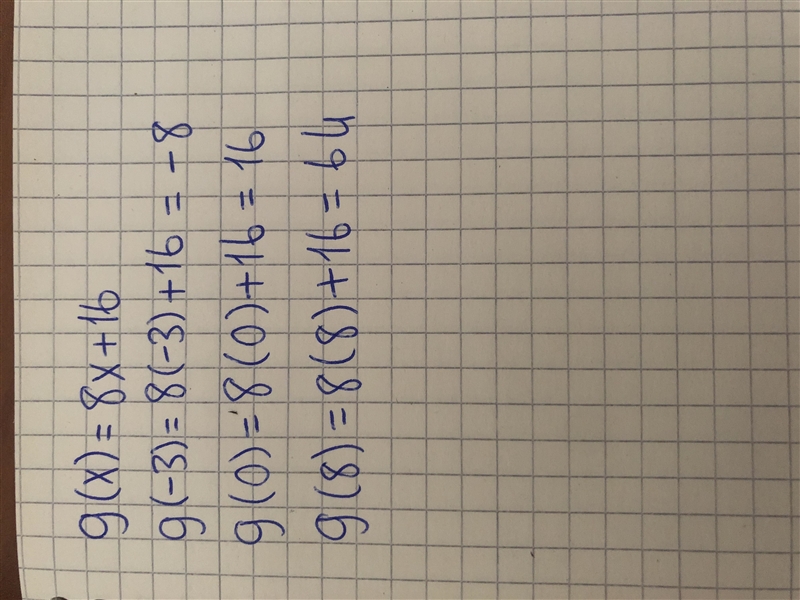 g(x) = 8x+16
g(-3) = 8(-3)+16 = -8
g(0) = 8(0)+16 = 16
g(8) = 8(8)+16 = 64